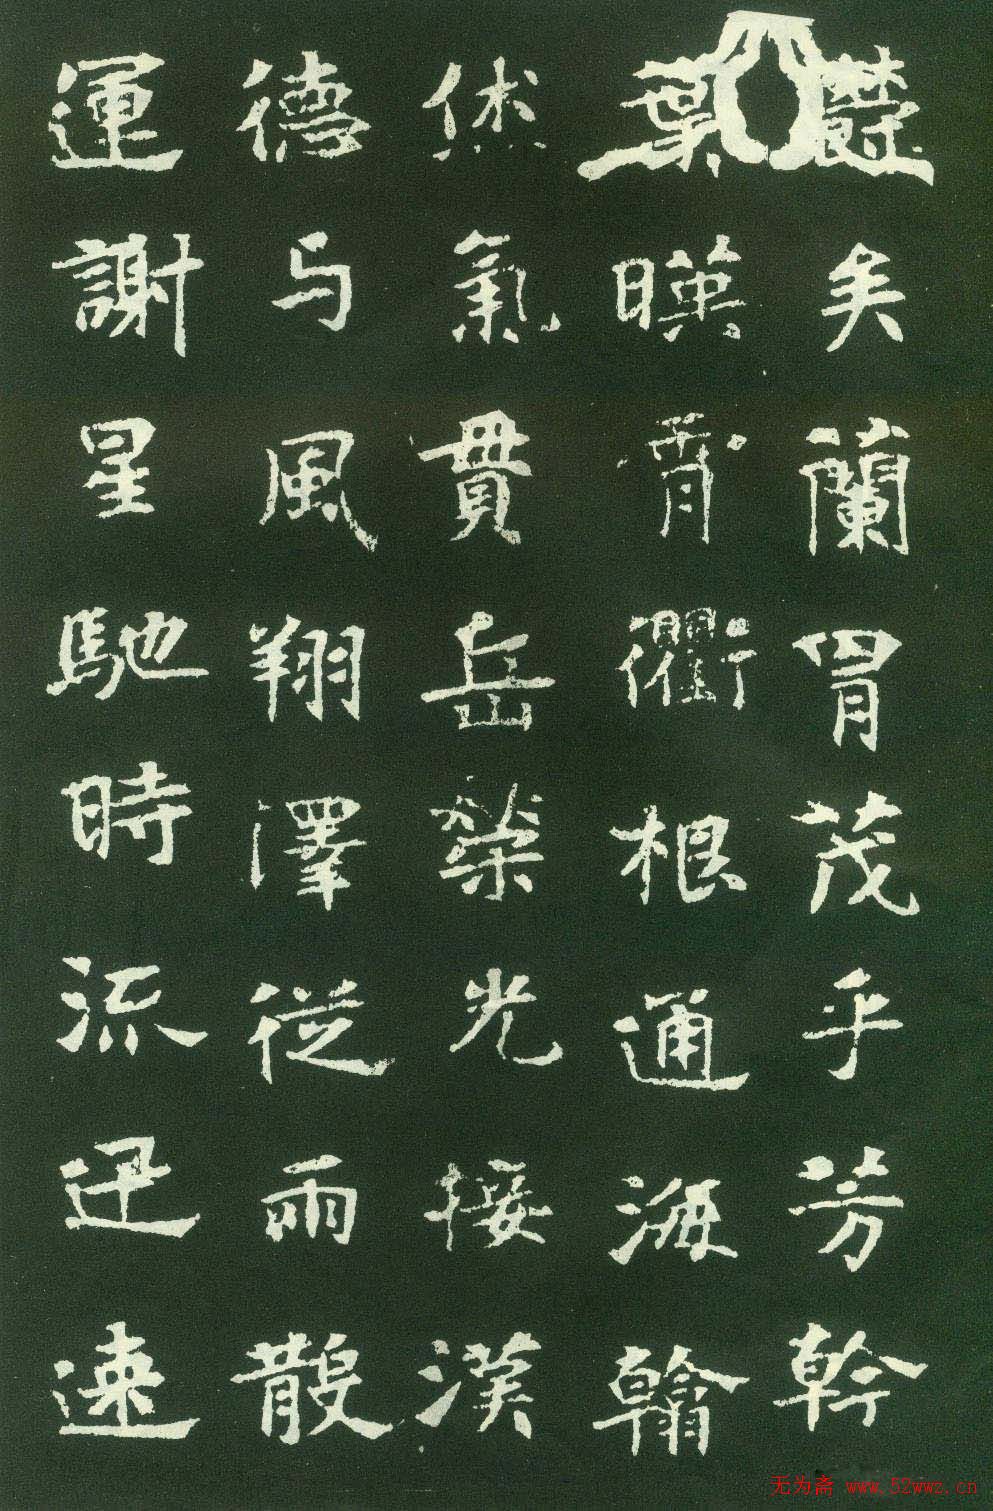 欝矣蘭胄茂乎芳幹
葉暎霄衢根通海翰
休氣貫岳榮光接漢
德与風翔澤從雨散
運謝星馳時流迅速
无为斋 www.52wwz.cn